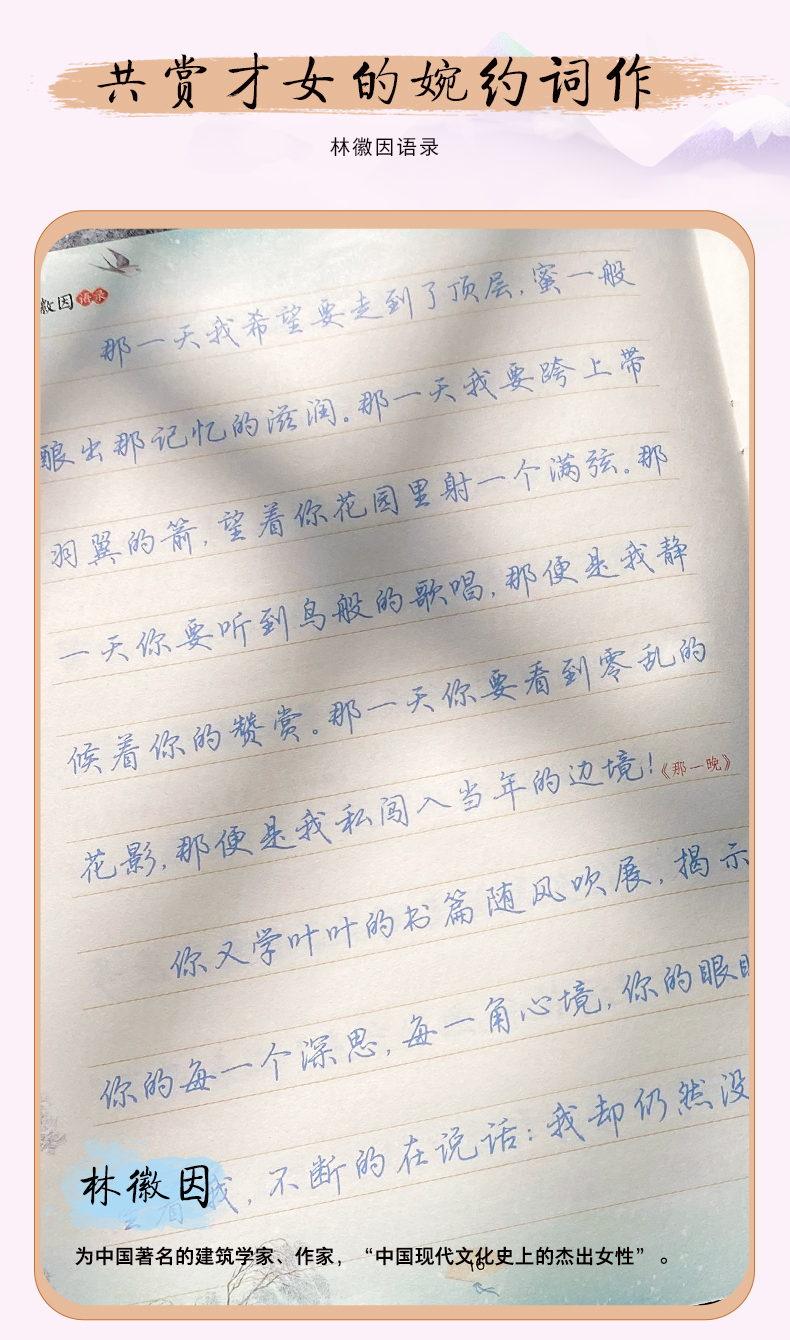 共赏才女的婉约词作
林徽因语录
徽因语录
那一天我希望要走到了顶层,蜜一般
酿出那记忆的滋润。那一天我要跨上带
羽翼的箭,望着你花园里射一个满弦。那
一天你要听到鸟般的歌唱,那便是我静
候着你的赞赏。那一天你要看到零乱的
花影,那便是我私闯入当年的边境!《那一晚》
你又学叶叶的书篇随风吹展,揭示
你的每一个深思,每一角心境,你的眼睛
望着我,不断的在说话:我却仍然没
林徽因
为中国著名的建筑学家、作家,“中国现代文化史上的杰出女性”。
16